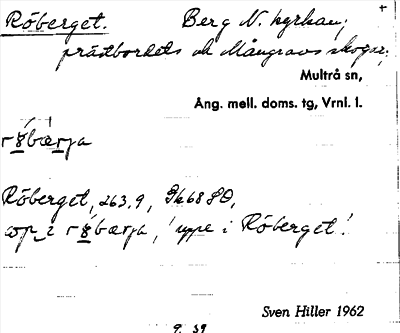 Röberget. Berg N. kyrkan,
prästbordets och Mångravs skogar.
Multrå sn,
Ång. mell. doms. tg, Vrnl. l.
Röberget, 263.9, Gk 68 SO,
uppe i Röberget!
Sven Hiller 1962
9. 59